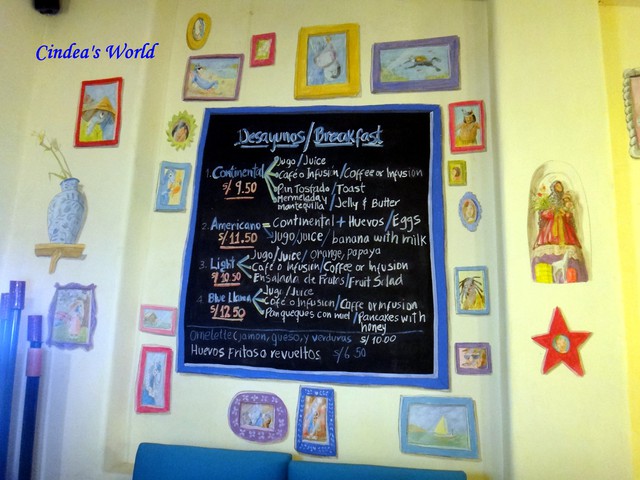 Cindea's World
Desayunos/Breakfast
Jugo/Juice
1. Continental Café o Infusión/Coffee or Infusion
S/ 9.50 Pan Tostado/Toast
Mermelada y mantequilla/Jelly & Butter
2. Americano = Continental + Huevos/Eggs
S/ 11.50 Jugo/Juice/banana with milk
Jugo/Juice/orange, papaya
3. Light Café o Infusión/Coffee or Infusion
S/ 10.50 Ensalada de Frutas/Fruit Salad
4. Blue Llama Jugo/Juice
Café o Infusión/Coffe or Infusion
S/ 12.50 Panqueques con miel/Pancakes with honey
Omelette (jamon, queso, y verduras S/ 10.00
Huevos Fritos o revueltos S/ 6.50